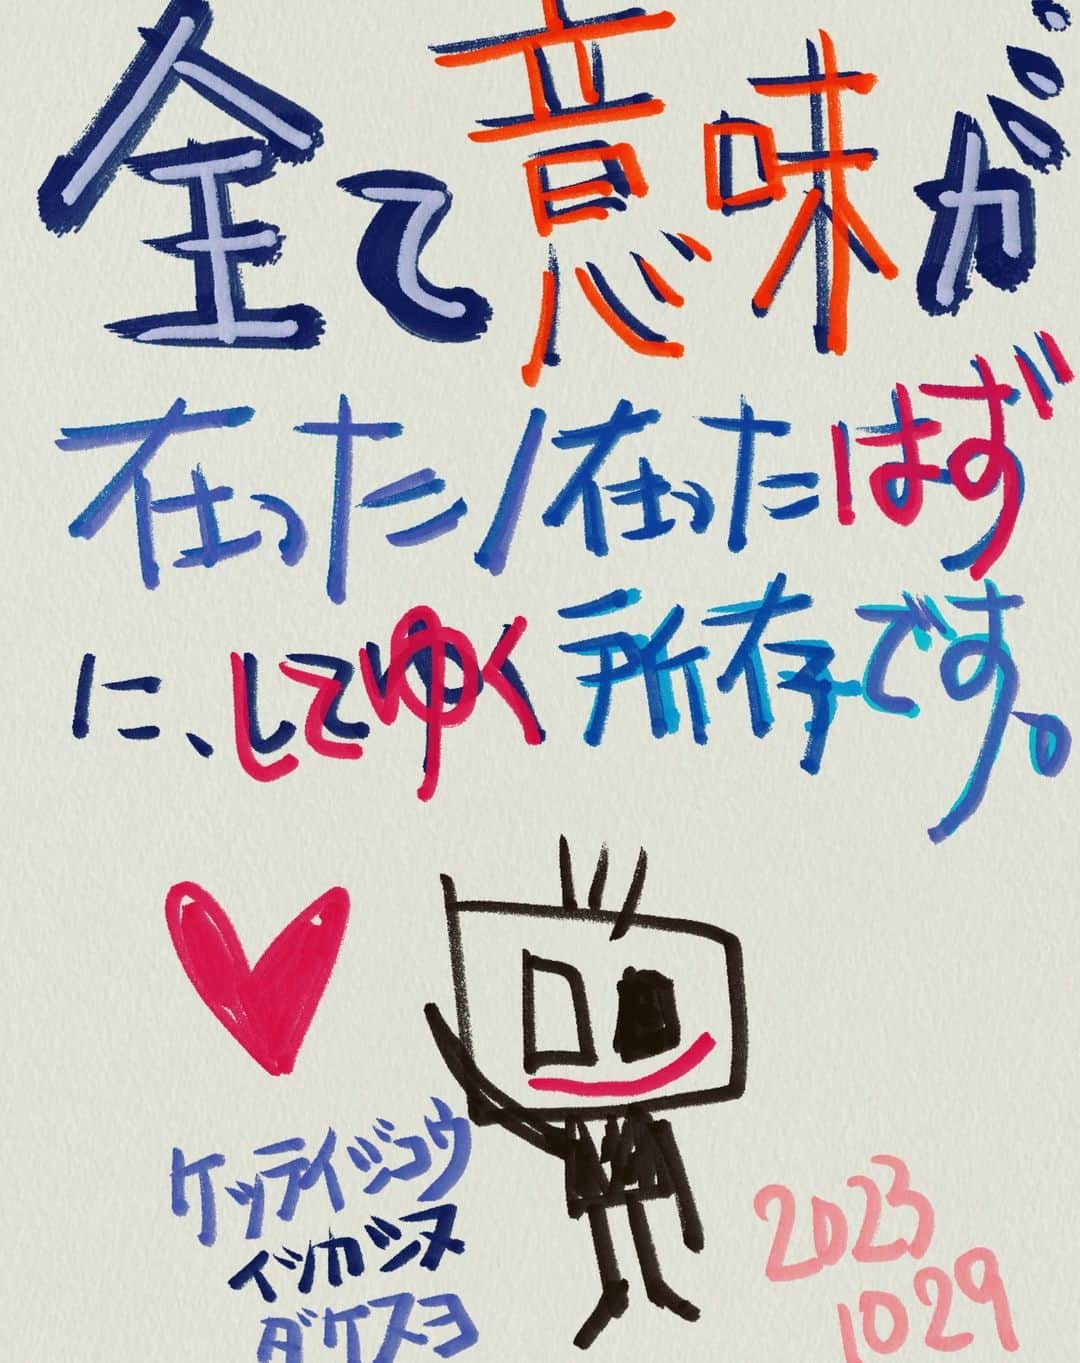 全て意味が
在った/在ったはず
に、してゆく所存です。
ケッテイジコウ
イツカシヌ
ダケスヨ
2023
1029